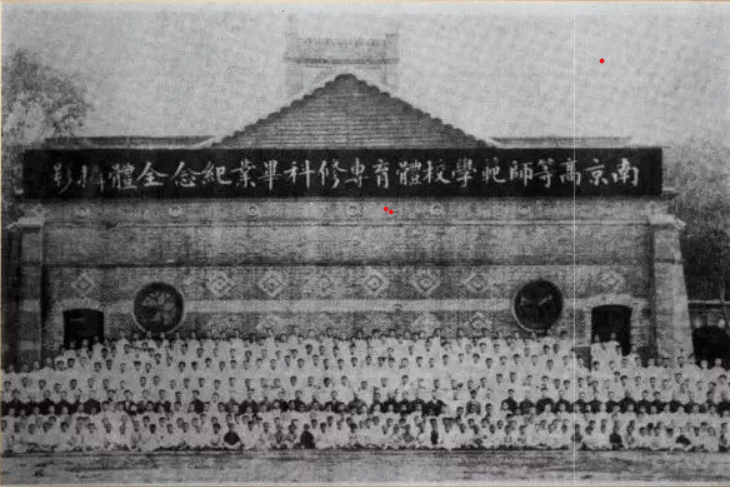 南京高等師範學校體育專修科畢業紀念全體攝影